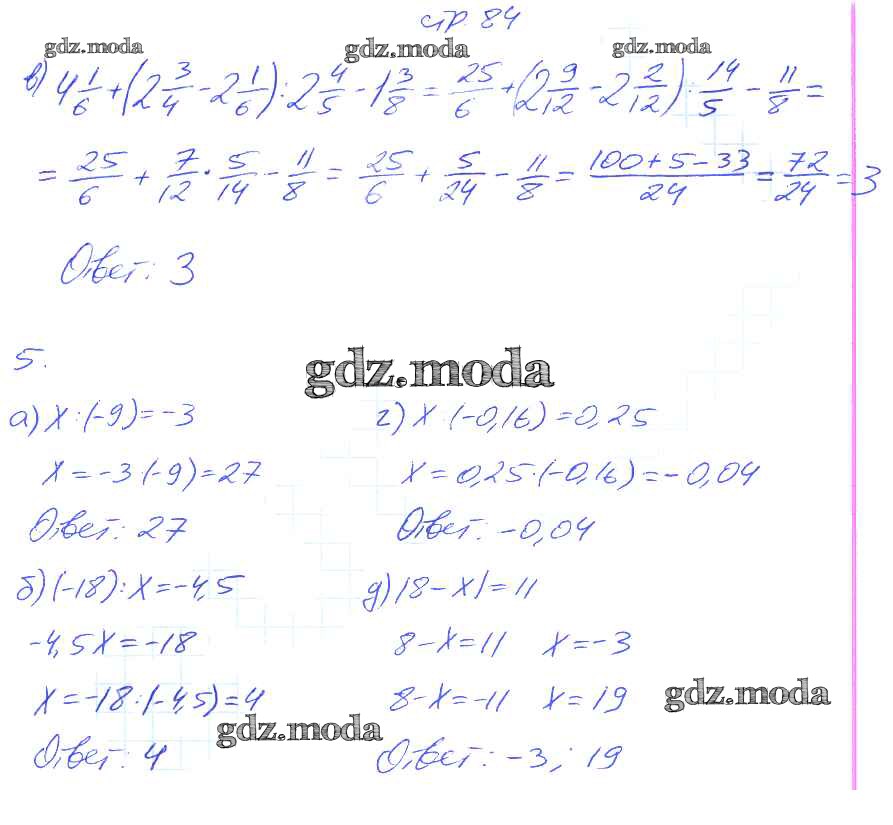 стр. 84
gdz.moda gdz.moda gdz.moda
в) 4 1/6 + (2 3/4 - 2 1/6) : 2 4/5 - 1 3/8 = 25/6 + (2 9/12 - 2 2/12) : 14/5 - 11/8 =
= 25/6 + 7/12 · 5/14 - 11/8 = 25/6 + 5/24 - 11/8 = (100+5-33)/24 = 72/24 = 3
Ответ: 3
5.
gdz.moda
а) X : (-9) = -3
X = -3 · (-9) = 27
Ответ: 27
б) (-18) : X = -4,5
-4,5X = -18
X = -18 : (-4,5) = 4
Ответ: 4
г) X : (-0,16) = 0,25
X = 0,25 · (-0,16) = -0,04
Ответ: -0,04
д) |8 - X| = 11
8 - X = 11 X = -3
8 - X = -11 X = 19
Ответ: -3; 19
gdz.moda
gdz.moda